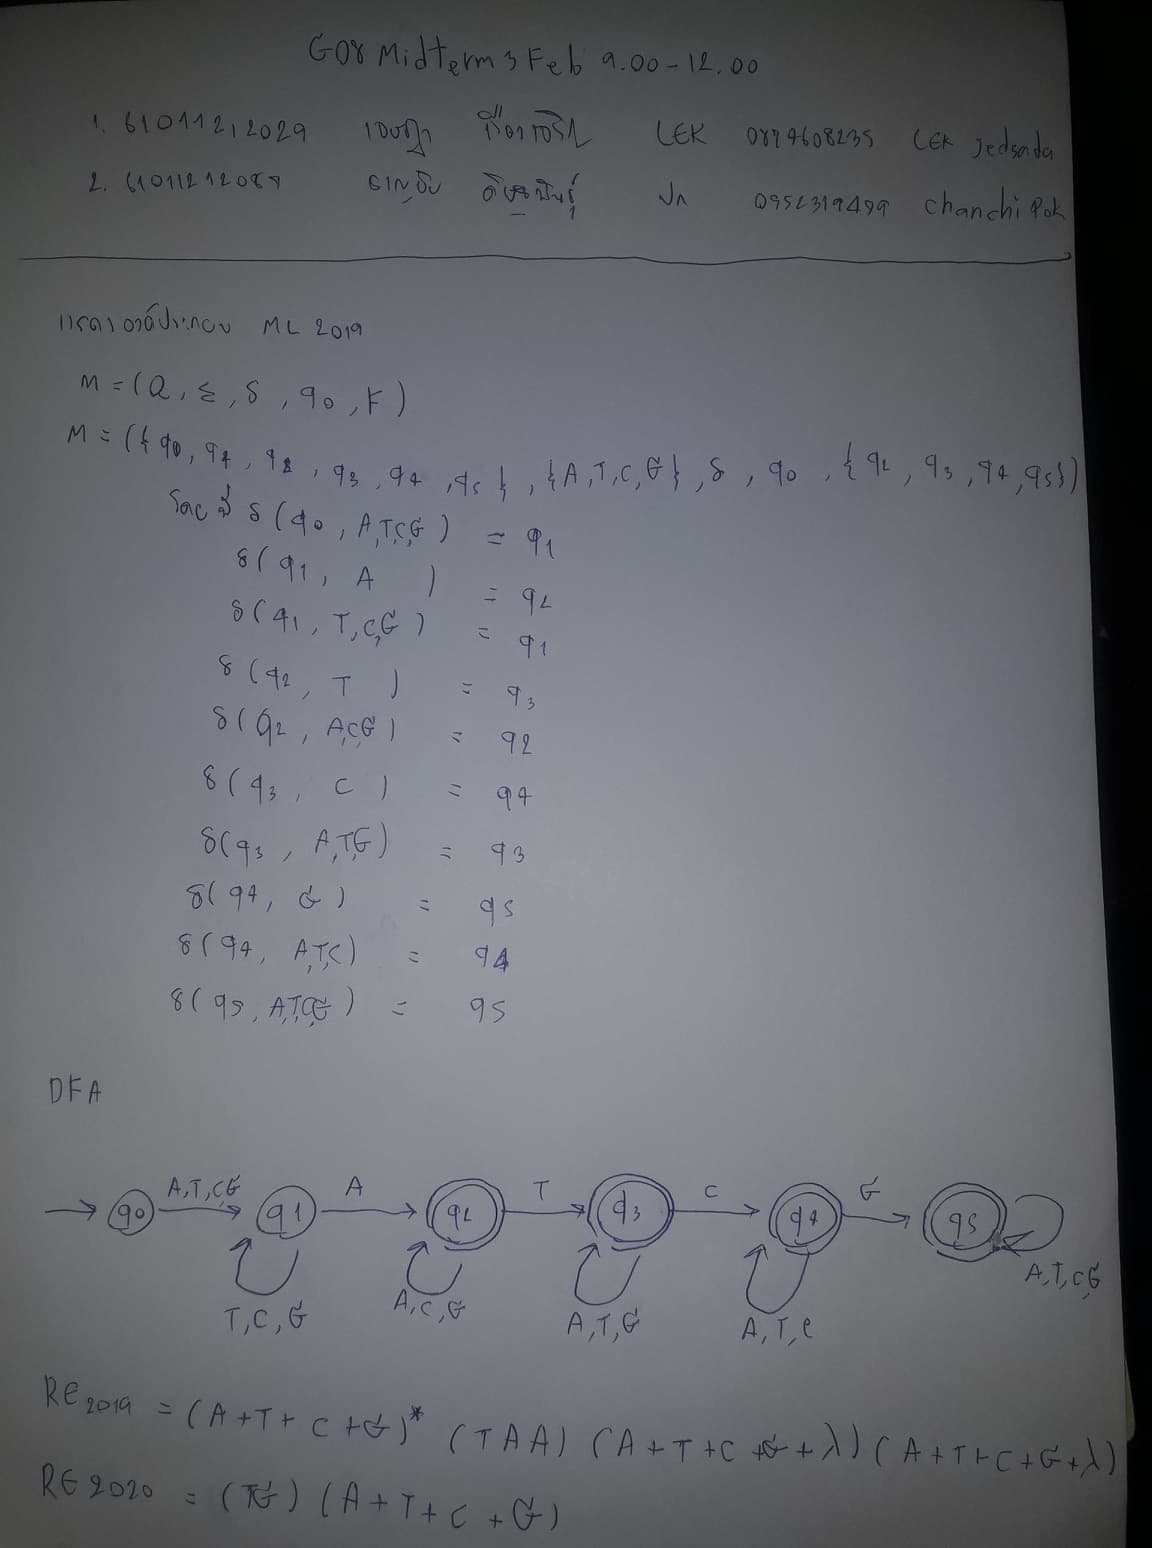 G08 Midterm 3 Feb 9.00-12.00
1. 61011212029 LEK LEK Jedsada
2. Chanchi Pok
ML 2019
M = (Q, Σ, δ, q0, F)
M = ({q0, q1, q2, q3, q4, q5}, {A,T,C,G}, δ, q0, {q2, q3, q4, q5})
δ(q0, A,T,C,G) = q1
δ(q1, A) = q2
δ(q1, T,C,G) = q1
δ(q2, T) = q3
δ(q2, A,C,G) = q2
δ(q3, C) = q4
δ(q3, A,T,G) = q3
δ(q4, G) = q5
δ(q4, A,T,C) = q4
δ(q5, A,T,C,G) = q5
DFA
A,T,C,G A T C G
q0 q1 q2 q3 q4 q5
T,C,G A,C,G A,T,G A,T,C A,T,C,G
RE2019 = (A+T+C+G)* (TAA) (A+T+C+G+λ) (A+T+C+G+λ)
RE2020 = (TG) (A+T+C+G)